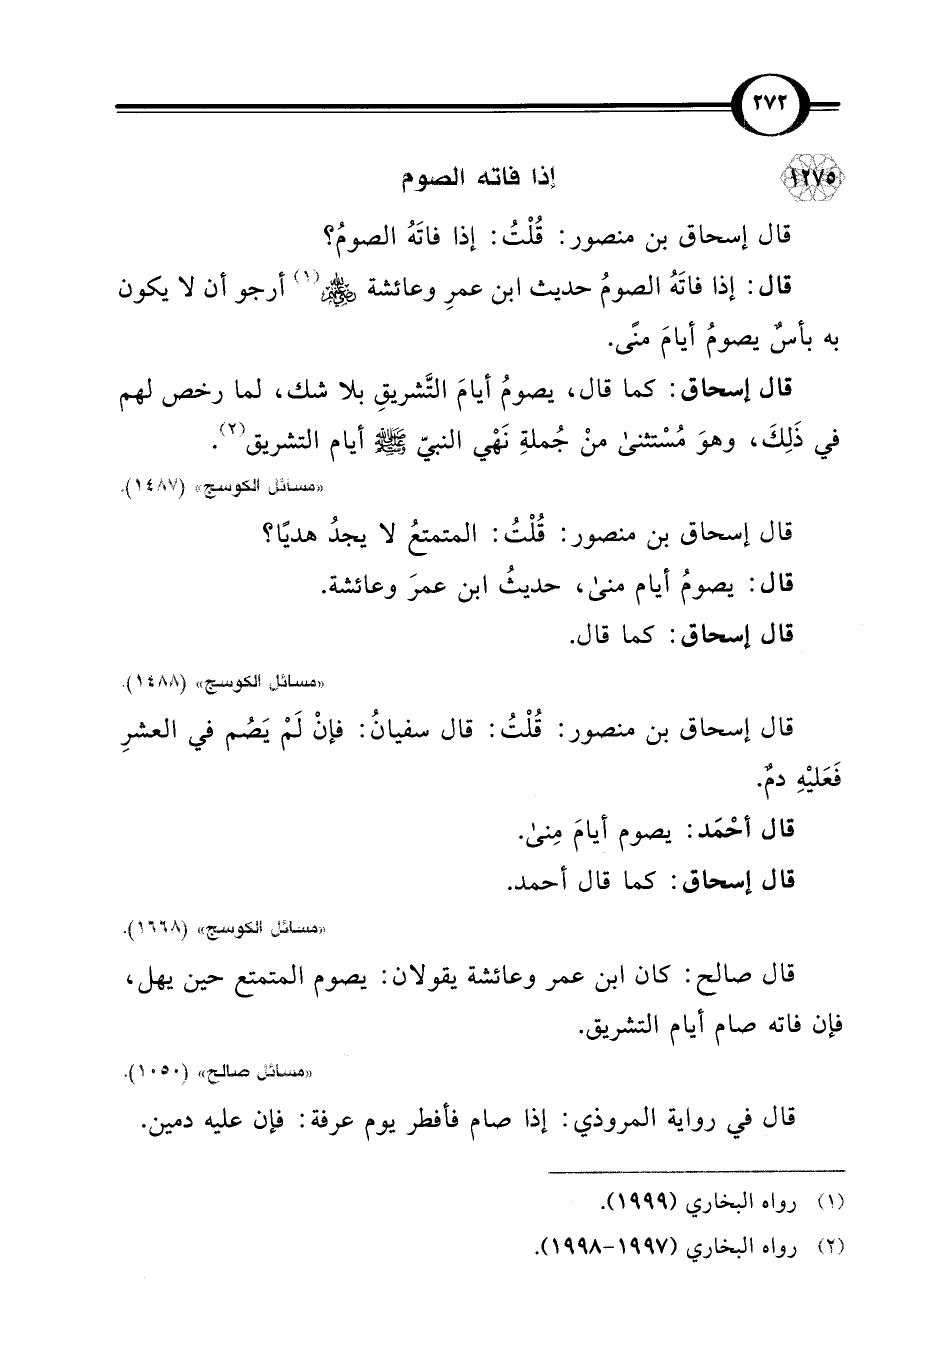 ٢٧٢
١٢٧٥ إذا فاته الصوم
قال إسحاق بن منصور: قُلْتُ: إذا فاتَهُ الصومُ؟
قال: إذا فاتَهُ الصومُ حديث ابن عمرِ وعائشة ﵃(١) أرجو أن لا يكون
به بأسٌ يصومُ أيامَ منًى.
قال إسحاق: كما قال، يصومُ أيامَ التَّشريقِ بلا شك، لما رخص لهم
في ذَلِكَ، وهوَ مُسْتثنىٰ منْ جُملةِ نَهْي النبيّ ﷺ أيام التشريق(٢).
«مسائل الكوسج» (١٤٨٧).
قال إسحاق بن منصور: قُلْتُ: المتمتعُ لا يجدُ هديًا؟
قال: يصومُ أيام منىٰ، حديثُ ابن عمرَ وعائشة.
قال إسحاق: كما قال.
«مسائل الكوسج» (١٤٨٨).
قال إسحاق بن منصور: قُلْتُ: قال سفيانُ: فإنْ لَمْ يَصُم في العشرِ
فَعَليْهِ دمٌ.
قال أحْمَد: يصوم أيامَ مِنىٰ.
قال إسحاق: كما قال أحمد.
«مسائل الكوسج» (١٦٦٨).
قال صالح: كان ابن عمر وعائشة يقولان: يصوم المتمتع حين يهل،
فإن فاته صام أيام التشريق.
«مسائل صالح» (١٠٥٠).
قال في رواية المروذي: إذا صام فأفطر يوم عرفة: فإن عليه دمين.
(١) رواه البخاري (١٩٩٩).
(٢) رواه البخاري (١٩٩٧-١٩٩٨).